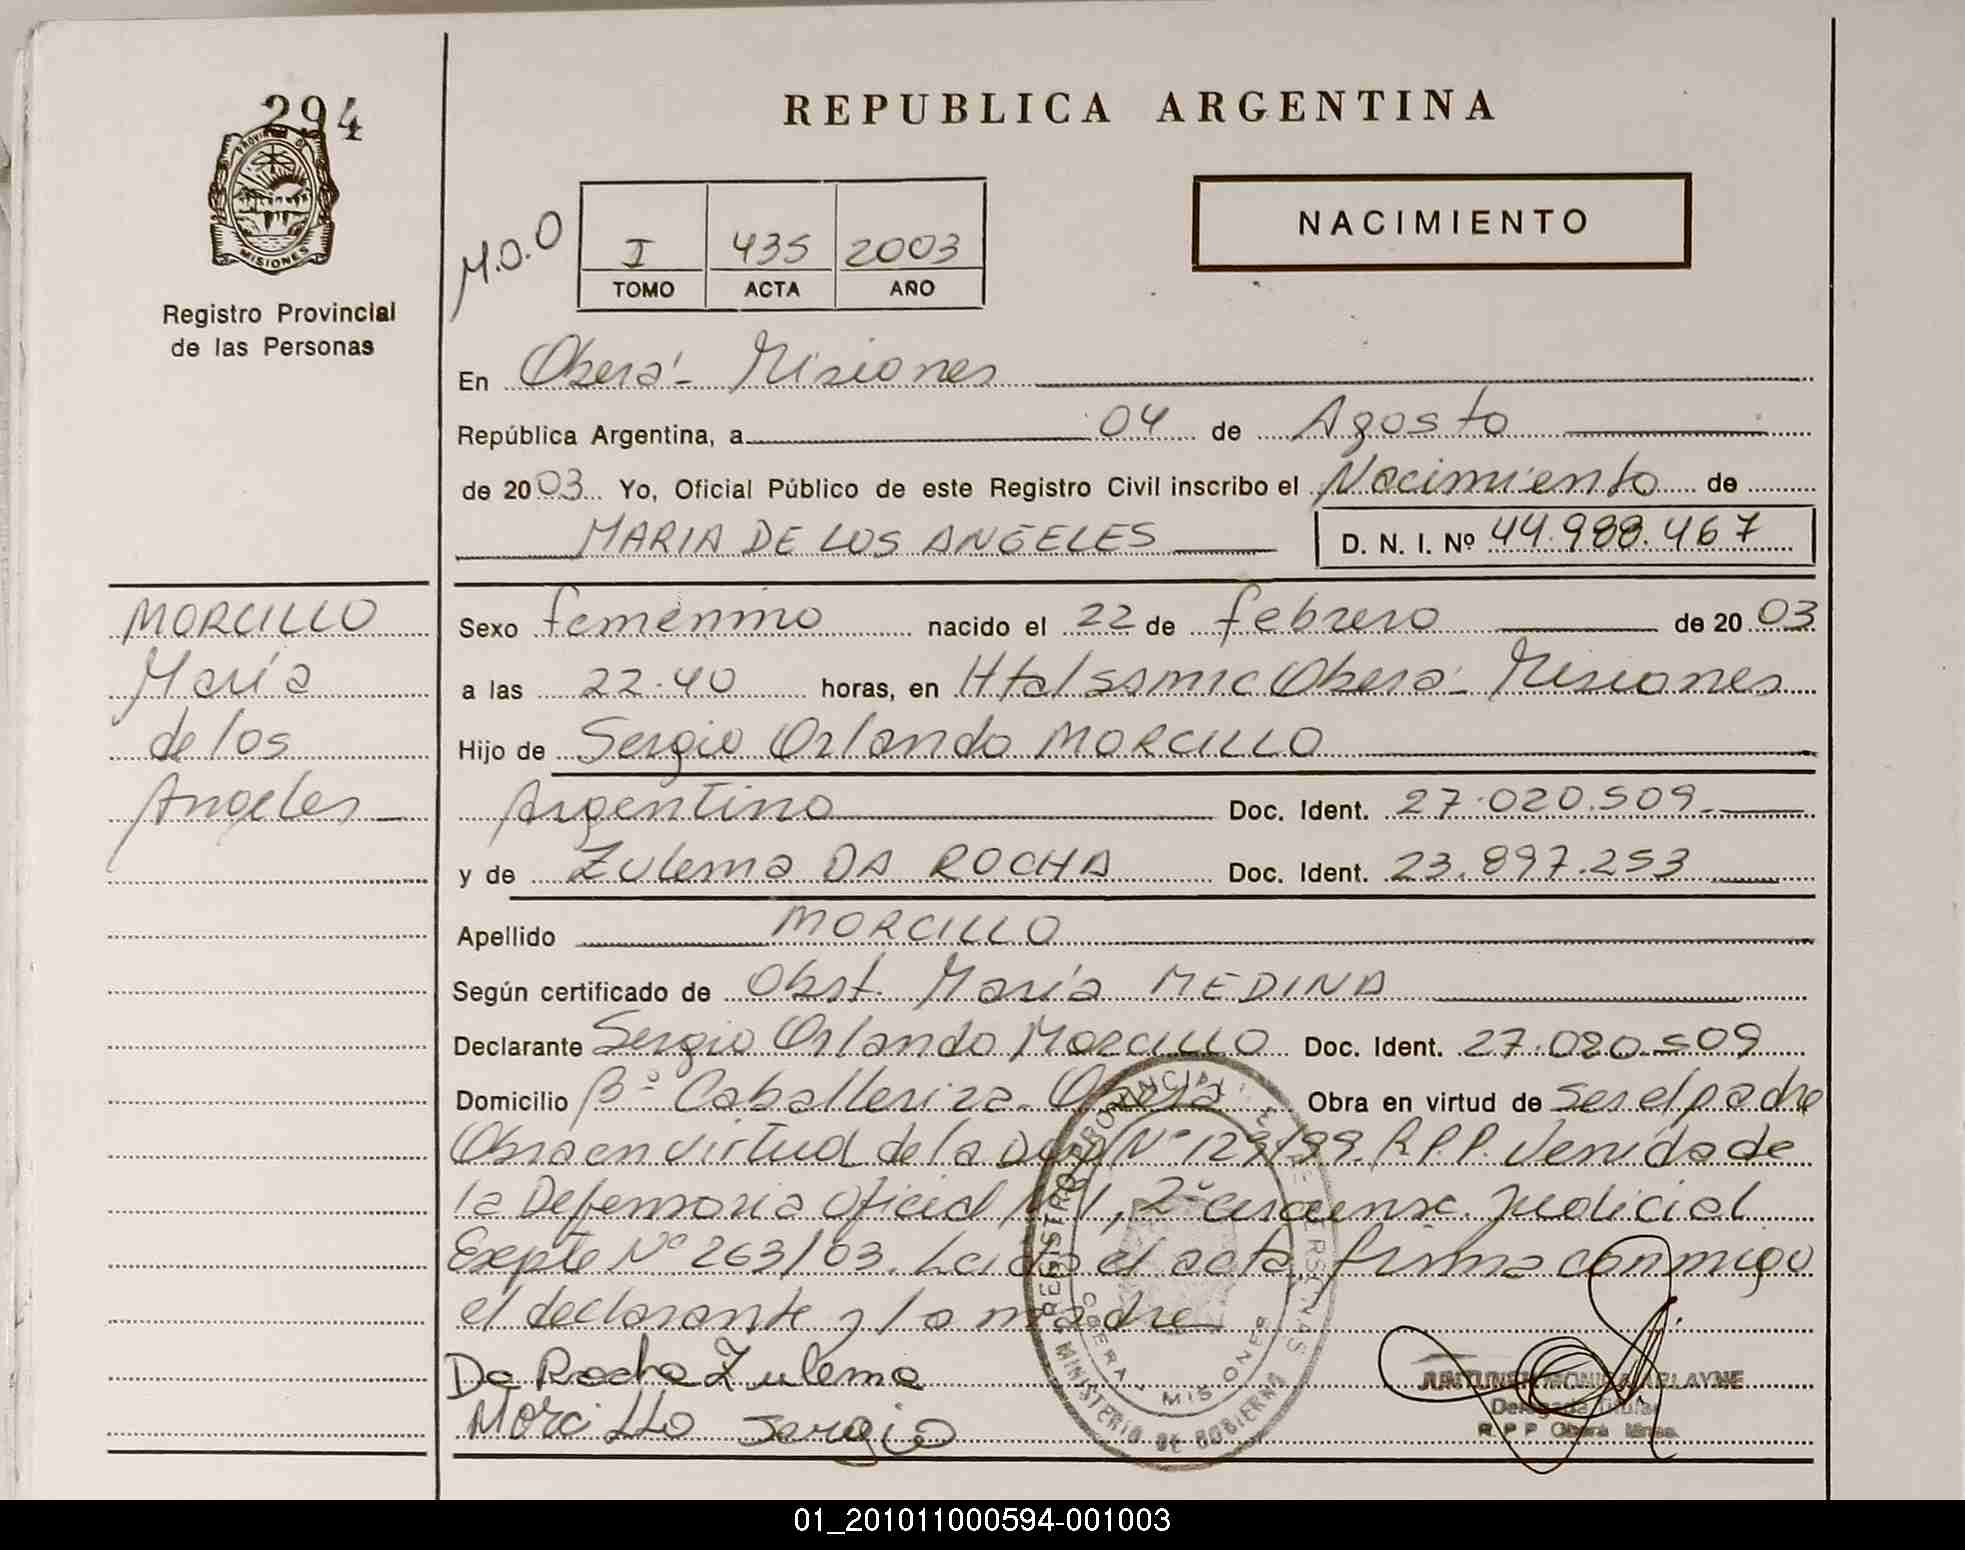 294
PROVINCIA DE
MISIONES
Registro Provincial
de las Personas
REPUBLICA ARGENTINA
M.O.O
I 435 2003
TOMO ACTA AÑO
NACIMIENTO
En Oberá - Misiones
República Argentina, a 04 de Agosto
de 2003 Yo, Oficial Público de este Registro Civil inscribo el Nacimiento de
MARIA DE LOS ANGELES D. N. I. Nº 44.988.467
MORCILLO
María
de los
Angeles
Sexo femenino nacido el 22 de febrero de 2003
a las 22.40 horas, en Htal SSMIC Oberá - Misiones
Hijo de Sergio Orlando MORCILLO
Argentino Doc. Ident. 27.020.509
y de Zulema DA ROCHA Doc. Ident. 23.897.253
Apellido MORCILLO
Según certificado de Obst. María MEDINA
Declarante Sergio Orlando MORCILLO Doc. Ident. 27.020.509
Domicilio Bº Caballeriza - Oberá Obra en virtud de ser el padre
Obra en virtud de la Disp Nº 129/99. R.P.P. Venida de
la Defensoria Oficial Nº 1, 2º circunsc. Judicial
Expte Nº 263/03. Leida el acta, firma conmigo
el declarante y la madre
Da Rocha Zulema
Morcillo Sergio
REGISTRO PROVINCIAL DE LAS PERSONAS
OBERA - MISIONES
MINISTERIO DE GOBIERNO
MONICA ARLAYNE
Delegada Titular
R P P Oberá Mnes.
01_201011000594-001003